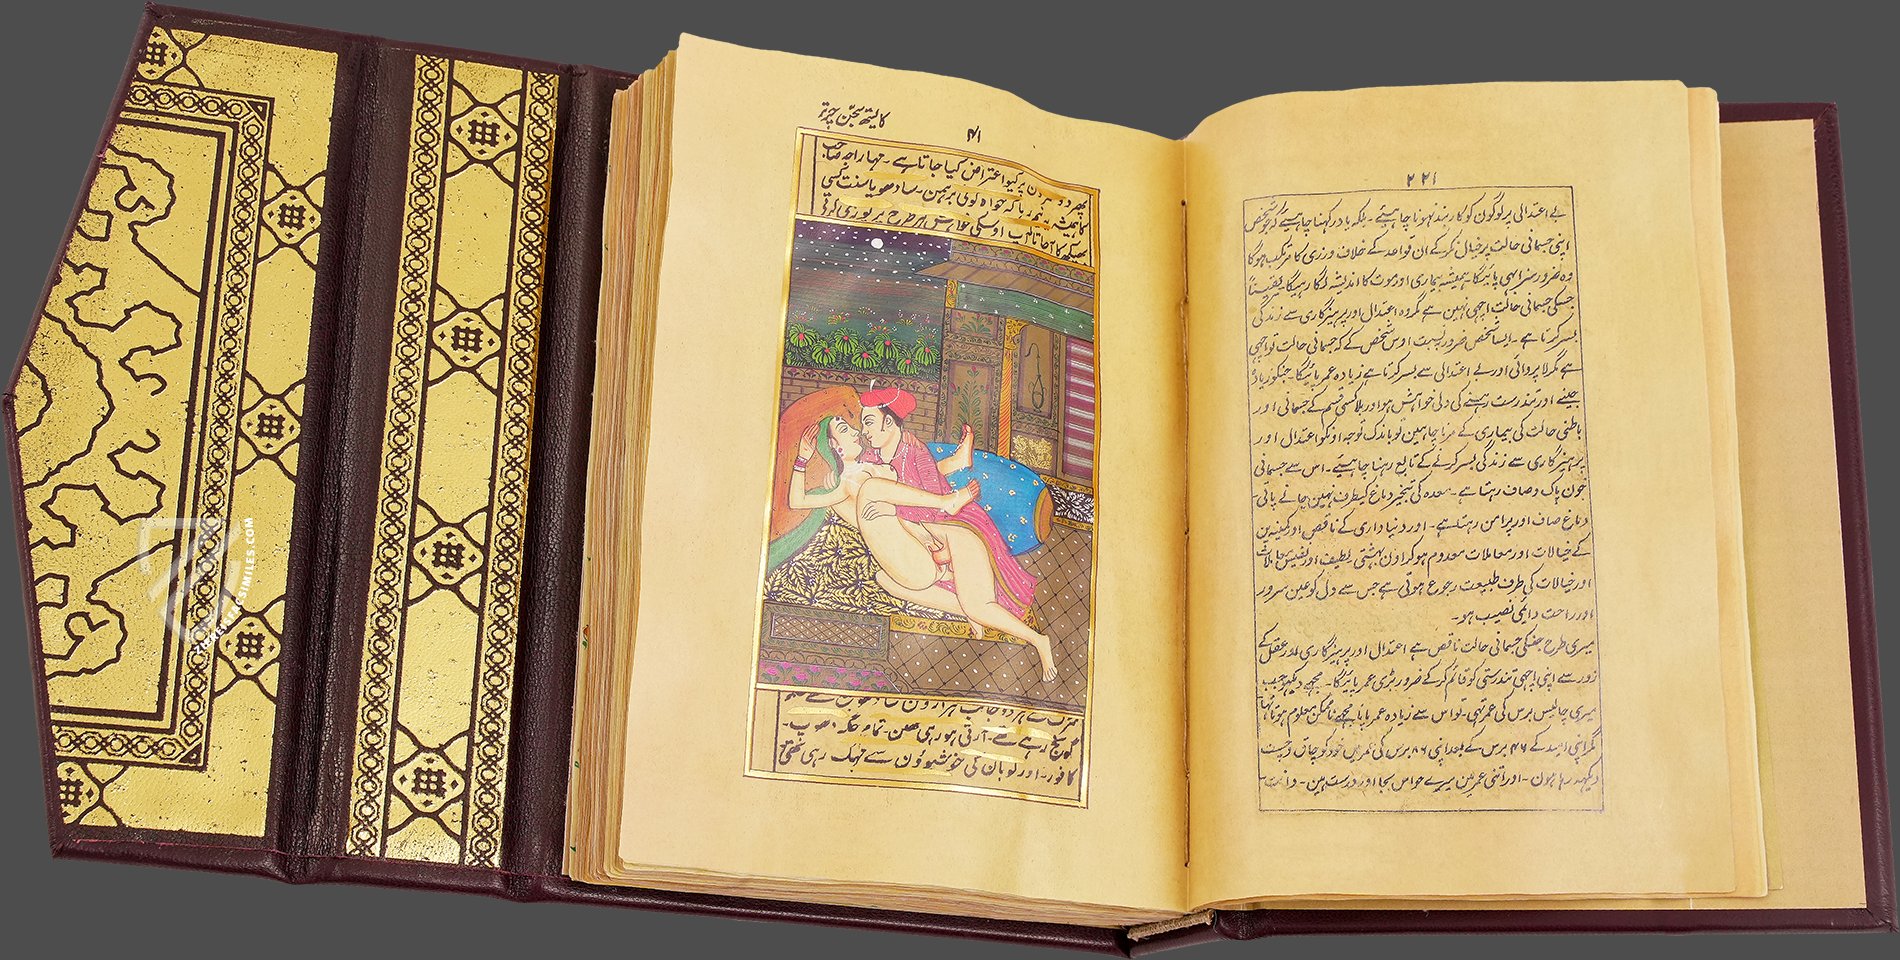 کایستھ سجن چرتر
۴۱
پھر دوسرون پر کیوں اعتراض کیا جاتا ہے۔ مہاراجہ صاحب
کا ہمیشہ یہ نمبر رہا کہ خواہ کوئی برہمن۔ سادھو یا سنت کسی
گونج رہے تھے۔ آرتی ہو رہی تھین۔ تمام جگہ۔ دھوپ۔
کافور۔ اور لوبان کی خوشبوؤن سے مہک رہی تھی
۲۲۱
بے اعتدالی پر لوگون کو کاربند نہونا چاہیئے۔ بلکہ یاد رکھنا چاہیئے کہ جو شخص
اپنی جسمانی حالت پر خیال نکر کے ان قواعد کے خلاف ورزی کا مرتکب ہوگا
وہ ضرور سزا بھی پائیگا۔ ہمیشہ بیماری اور موت کا اندیشہ لگا رہیگا۔ یقیناً
جسکی جسمانی حالت اچھی نہین ہے مگر وہ اعتدال اور پرہیزگاری سے زندگی
بسر کرتا ہے۔ ایسا شخص ضرور بہ نسبت اوس شخص کے کہ جسمانی حالت تو اچھی
ہے مگر لاپروائی اور بے اعتدالی سے بسر کرتا ہے زیادہ عمر پائیگا۔ جنکو زیادہ
جینے اور تندرست رہنے کی دلی خواہش ہو اور بلا کسی قسم کے جسمانی اور
باطنی حالت کی بیماری کے مرنا چاہین تو باندک توجہ اونکو اعتدال اور
پرہیزگاری سے زندگی بسر کرنے کے تابع رہنا چاہیئے۔ اس سے جسمانی
خون پاک و صاف رہتا ہے۔ معدہ کی تبخیر دماغ کیطرف نہین جانے پاتی۔
دماغ صاف اور پر امن رہتا ہے۔ اور دنیاداری کے ناقص اور کمینہ پن
کے خیالات اور معاملات معدوم ہو کر اون بہشتی لطیف اور نفیس حالات
اور خیالات کی طرف طبیعت رجوع ہوتی ہے جس سے دل کو عین سرور
اور راحت دائمی نصیب ہو۔
میری طرح جنکی جسمانی حالت ناقص ہے اعتدال اور پرہیزگاری اور عقل کے
زور سے اپنی اچھی تندرستی کو قائم کر کے ضرور بڑی عمر پائیگا۔ مجھے دیکھو جب
میری چالیس برس کی عمر تھی۔ تو اس سے زیادہ عمر پانا مجھے ناممکن معلوم ہوتا تھا
مگر اپنی امید کے ۴۶ برس کے بعد اپنی ۸۶ برس کی عمر مین خود کو چاق درست
دیکھ رہا ہون۔ اور اتنی عمر مین میرے حواس بجا اور درست ہین۔ دانت۔
FACSIMILES.COM